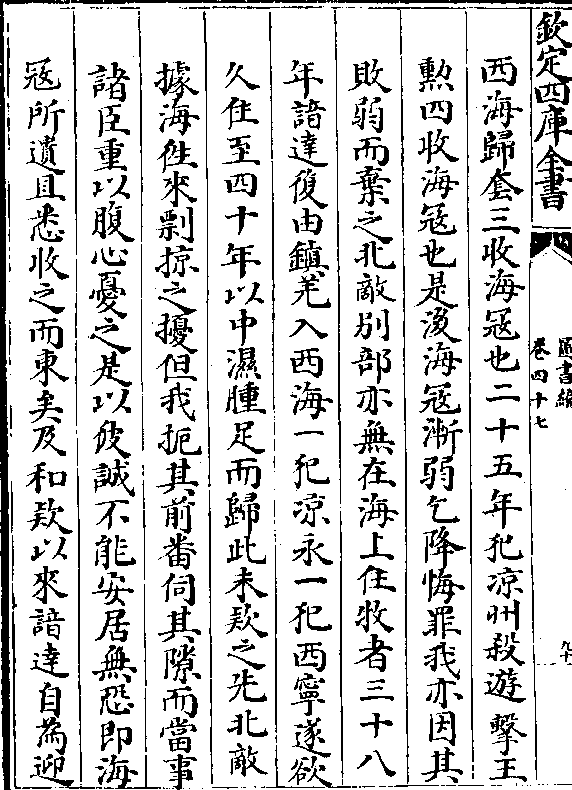 欽定四庫全書
圖書編
卷四十七
西海歸套三收海冦也二十五年犯涼州殺遊擊王
勲四收海冦也是後海冦漸弱乞降悔罪我亦因其
敗弱而棄之北敵别部亦無在海上住牧者三十八
年諳達復由鎮羌入西海一犯凉永一犯西寧遂欲
久住至四十年以中濕腫足而歸此未欵之先北敵
據海徃來剽掠之擾但我扼其前畨伺其隙而當事
諸臣重以腹心憂之是以彼誠不能安居無恐即海
冦所遺且悉收之而東矣及和欵以來諳達自為迎